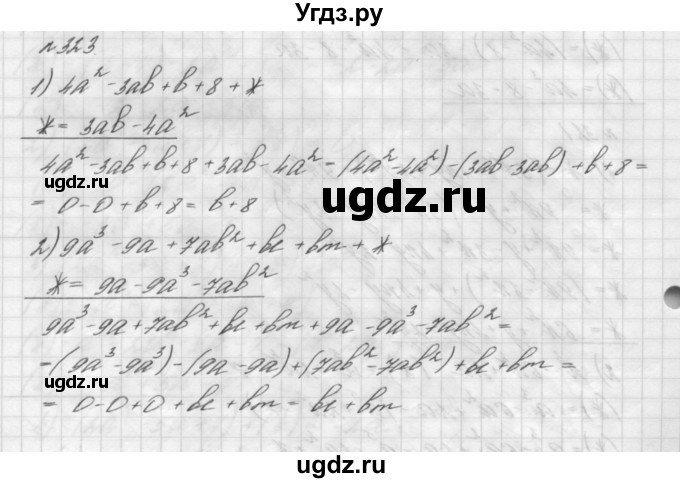 Угдз.ру
№323
1) 4a² - 3ab + b + 8 + *
* = 3ab - 4a²
4a² - 3ab + b + 8 + 3ab - 4a² = (4a² - 4a²) - (3ab - 3ab) + b + 8 =
ugdz.ru
= 0 - 0 + b + 8 = b + 8
ugdz.ru
ugdz.ru
2) 9a³ - 9a + 7ab² + bc + bm + *
* = 9a - 9a³ - 7ab²
9a³ - 9a + 7ab² + bc + bm + 9a - 9a³ - 7ab² =
= (9a³ - 9a³) - (9a - 9a) + (7ab² - 7ab²) + bc + bm =
ugdz.ru
ugdz.ru
= 0 - 0 + 0 + bc + bm = bc + bm
ugdz.ru